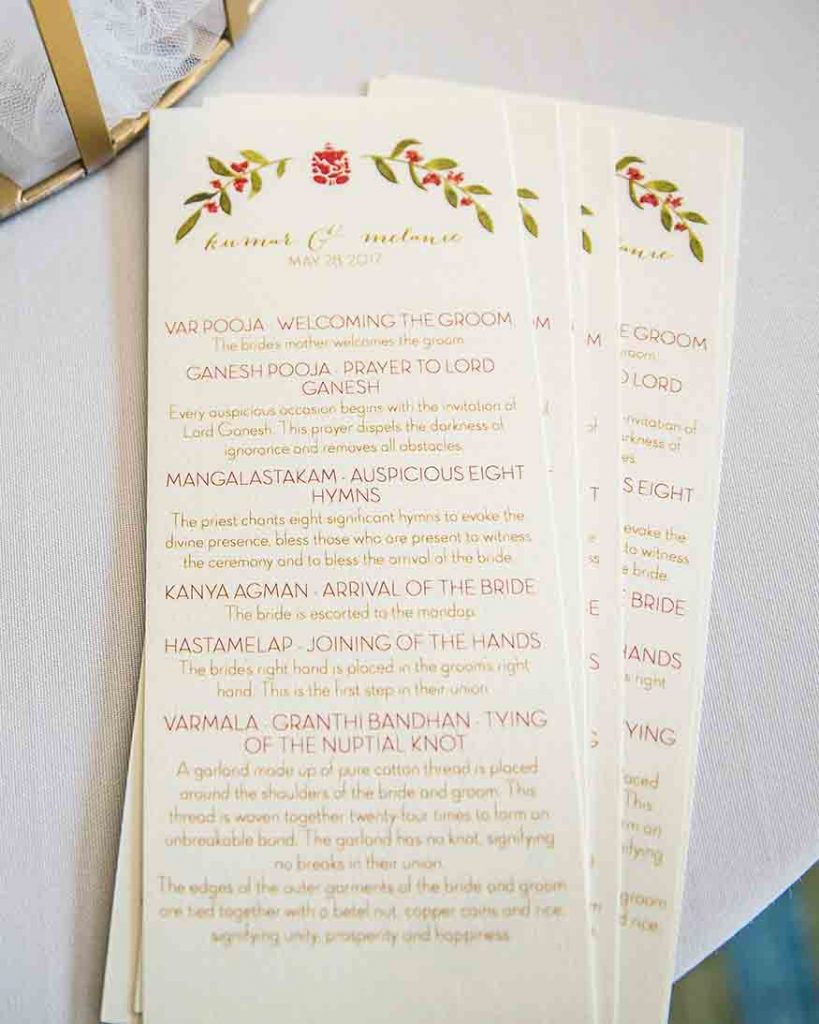 kumar & melanie
MAY 28, 2017
VAR POOJA - WELCOMING THE GROOM
The bride's mother welcomes the groom.
GANESH POOJA - PRAYER TO LORD
GANESH
Every auspicious occasion begins with the invitation of
Lord Ganesh. This prayer dispels the darkness of
ignorance and removes all obstacles.
MANGALASTAKAM - AUSPICIOUS EIGHT
HYMNS
The priest chants eight significant hymns to evoke the
divine presence, bless those who are present to witness
the ceremony and to bless the arrival of the bride.
KANYA AGMAN - ARRIVAL OF THE BRIDE
The bride is escorted to the mandap.
HASTAMELAP - JOINING OF THE HANDS
The bride's right hand is placed in the groom's right
hand. This is the first step in their union.
VARMALA - GRANTHI BANDHAN - TYING
OF THE NUPTIAL KNOT
A garland made up of pure cotton thread is placed
around the shoulders of the bride and groom. This
thread is woven together twenty-four times to form an
unbreakable bond. The garland has no knot, signifying
no breaks in their union.
The edges of the outer garments of the bride and groom
are tied together with a betel nut, copper coins and rice,
signifying unity, prosperity and happiness.
E GROOM
groom.
LORD
invitation of
darkness of
S EIGHT
evoke the
to witness
e bride.
BRIDE
HANDS
right
TYING
placed
This
form an
signifying
groom
and rice,